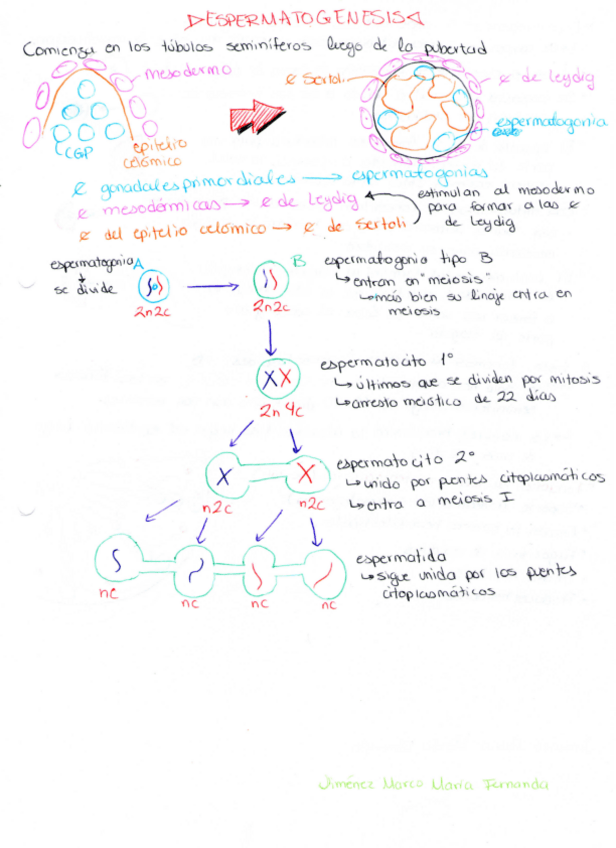 ESPERMATOGENESIS
Comienza en los túbulos seminíferos luego de la pubertad
mesodermo
CGP
epitelio
celómico
ȼ Sertoli
ȼ de Leydig
espermatogonia
ȼ gonadales primordiales → espermatogonias
ȼ mesodérmicas → ȼ de Leydig
ȼ del epitelio celómico → ȼ de Sertoli
estimulan al mesodermo
para formar a las ȼ
de Leydig
espermatogonia A
↓
se divide
2n2c
B
2n2c
espermatogonia tipo B
↳ entran en "meiosis"
↳ más bien su linaje entra en
meiosis
espermatocito 1°
↳ últimos que se dividen por mitosis
↳ arresto meiótico de 22 días
2n 4c
espermatocito 2°
↳ unido por puentes citoplasmáticos
↳ entra a meiosis I
n2c
n2c
espermatida
↳ sigue unida por los puentes
citoplasmáticos
nc
nc
nc
nc
Jiménez Marco María Fernanda